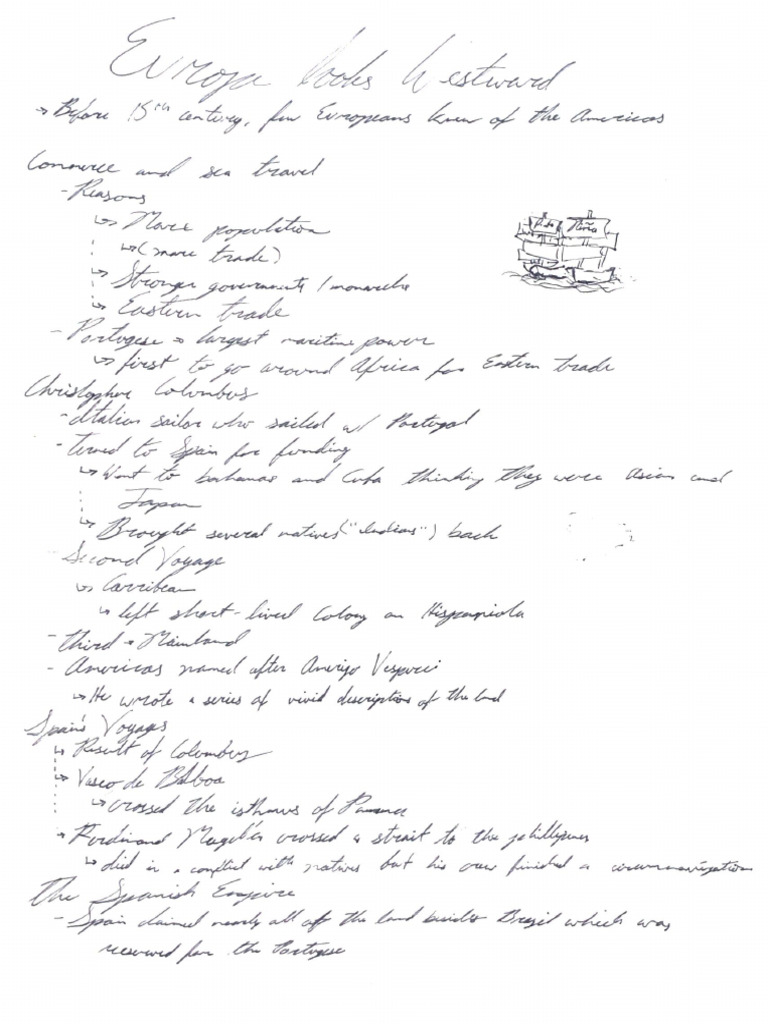 Europe looks Westward
→ Before 15th century, few Europeans knew of the Americas
Commerce and sea travel
- Reasons
↳ More population
↳ (more trade)
Pinta Niña
↳ Stronger governments / monarchs
↳ Eastern trade
- Portugese → largest maritime power
↳ first to go around Africa for Eastern trade
Christopher Columbus
- Italian sailor who sailed w/ Portugal
- Turned to Spain for funding
↳ Went to bahamas and Cuba thinking they were Asian and
Japan
↳ Brought several natives ("Indians") back
- Second Voyage
↳ Carribean
↳ left short-lived Colony on Hispaniola
- third → Mainland
- Americas named after Amerigo Vespucci
↳ He wrote a series of vivid descriptions of the land
Spain's Voyages
↳ Result of Columbus
↳ Vasco de Balboa
↳ crossed the isthmus of Panama
↳ Ferdinand Magellan crossed a strait to the phillipines
↳ died in a conflict with natives but his crew finished a circumnavigation
The Spanish Empire
- Spain claimed nearly all of the land besides Brazil which was
reserved for the Portugese